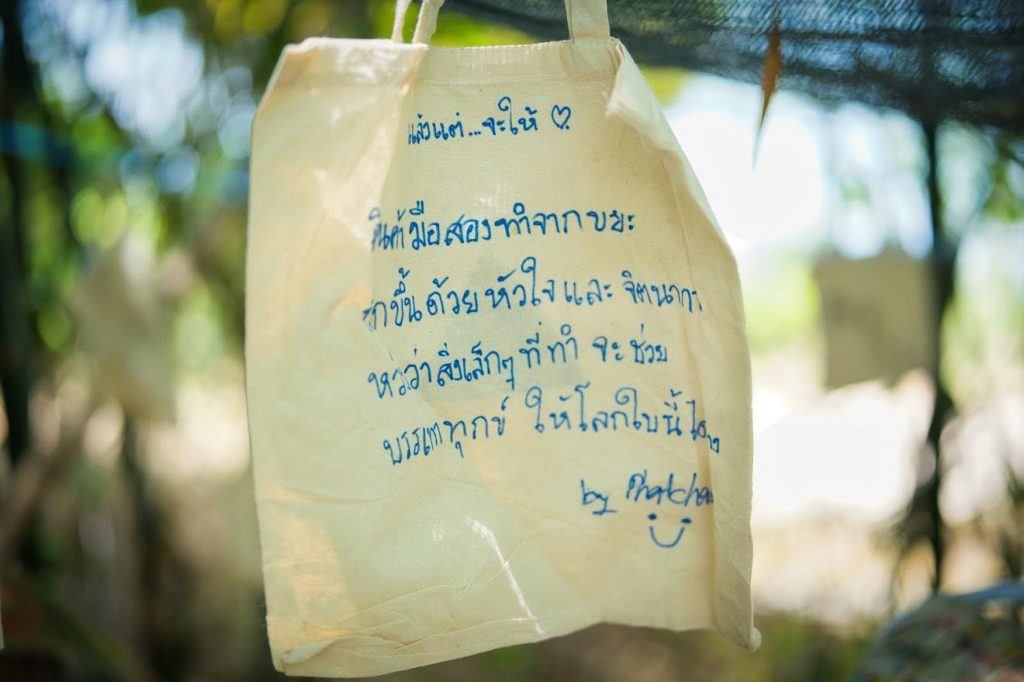 แล้วแต่...จะให้ ♡
สินค้ามือสองทำจากขยะ
ขึ้นด้วยหัวใจและจิตนากา
หวังว่าสิ่งเล็กๆ ที่ทำ จะช่วย
บรรเทาทุกข์ ให้โลกใบนี้ได้
by